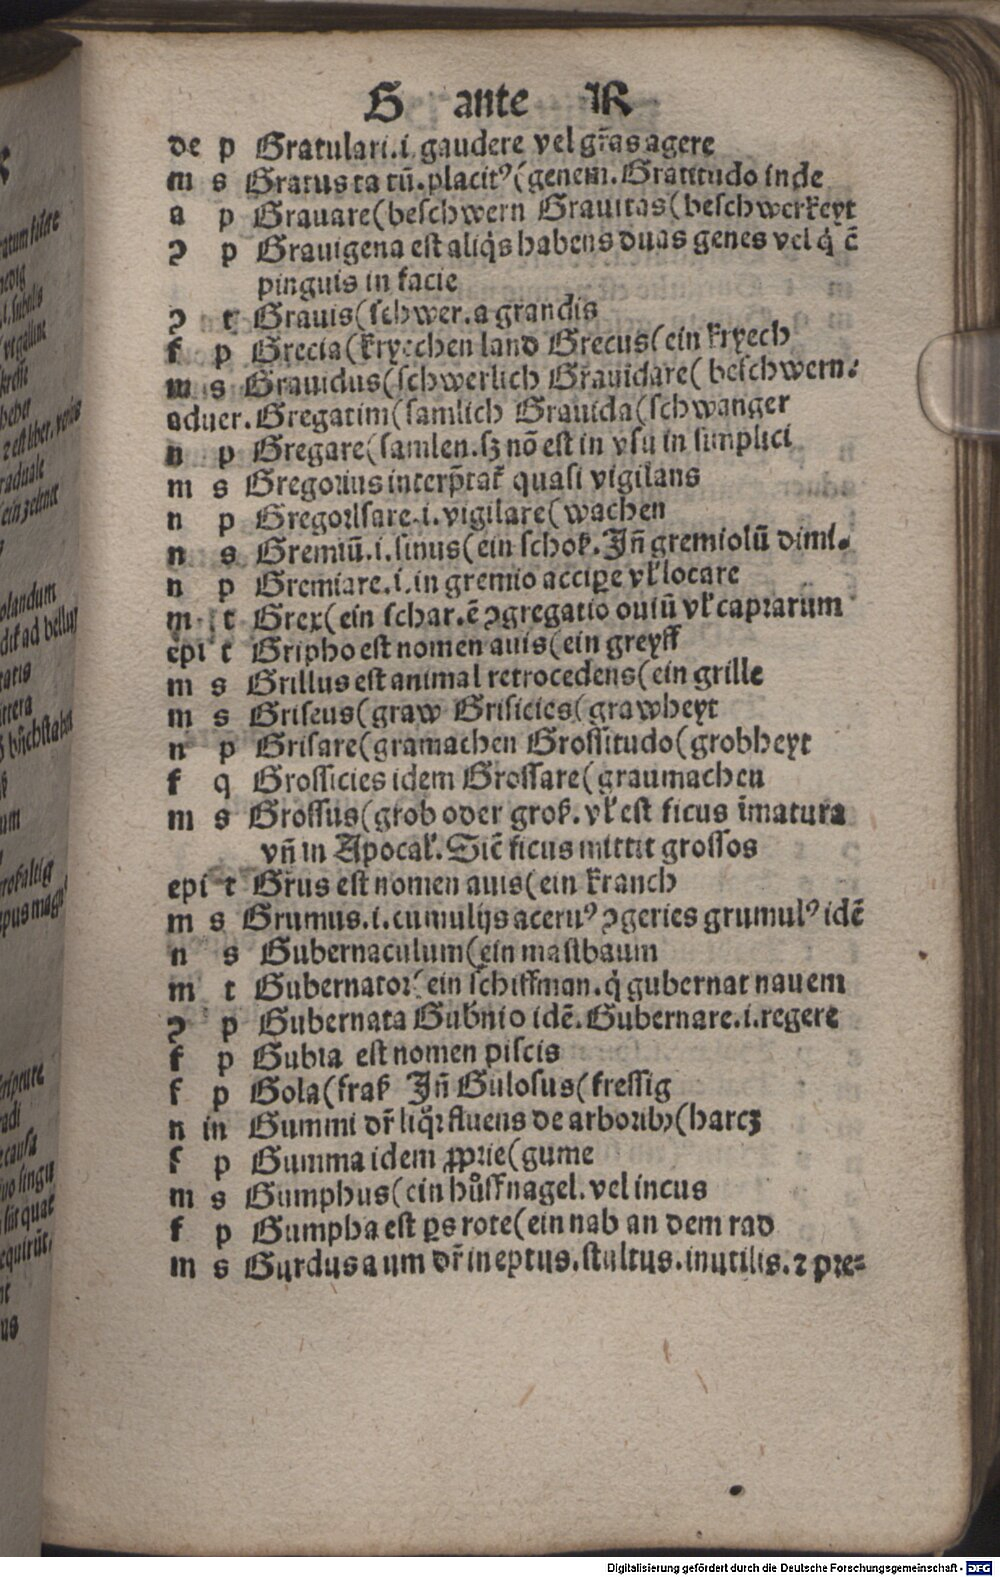 G ante R
de p Gratulari.i. gaudere vel gr̄as agere
m s Gratus ta tū.placitꝰ(genem.Gratitudo inde
a p Grauare(beschwern Grauitas(beschwerkeyt
ꝯ p Grauigena est aliq̇s habens duas genes vel q̇ ē
pinguis in facie
ꝯ t Grauis(schwer.a grandis
f p Grecia(kryechen land Grecus(ein kryech
m s Grauidus(schwerlich Grauidare(beschwern:
aduer. Gregatim(samlich Grauida(schwanger
n p Gregare(samlen.sꝫ nō est in vsu in simplici
m s Gregorius interp̄tat̄ quasi vigilans
n p Gregorisare.i.vigilare(wachen
n s Gremiū.i.sinus(ein schoß.Jn̄ gremiolū dimi.
n p Gremiare.i.in gremio accipe vl̓ locare
m t Grex(ein schar.ē ꝯgregatio ouiū vl̓ caprarum
epi t Gripho est nomen auis(ein greyff
m s Grillus est animal retrocedens(ein grille
m s Griseus(graw Grisicies(grawheyt
n p Grisare(gramachen Grossitudo(grobheyt
f q Grossicies idem Grossare(graumachen
m s Grossus(grob oder groß.vl̓ est ficus īmatura
vn̄ in Apocal̓.Sic̄ ficus mittit grossos
epi t Grus est nomen auis(ein kranch
m s Grumus.i.cumulꝰ aceruꝰ ꝯgeries grumulꝰ idē
n s Gubernaculum(ein mastbaum
m t Gubernator(ein schiffman.q̇ gubernat nauem
ꝯ p Gubernata Gub̄nio idē.Gubernare.i.regere
f p Gubia est nomen piscis
f p Gola(fraß Jn̄ Gulosus(fressig
n in Gummi dr̄ liq̄r fluens de arboribꝰ(harcz
f p Gumma idem ꝓprie(gume
m s Gumphus(ein hůffnagel.vel incus
f p Gumpha est ꝑs rote(ein nab an dem rad
m s Gurdus a um dr̄ ineptus.stultus.inutilis.ꝛ pre-
Digitalisierung gefördert durch die Deutsche Forschungsgemeinschaft - DFG